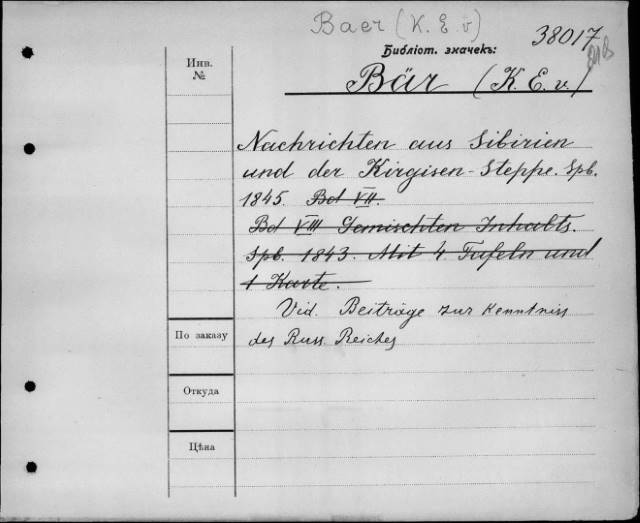 Baer (K. E. v)
38017
Библіот. значекъ:
Инв.
№
Bär (K. E. v.)
Nachrichten aus Sibirien
und der Kirgisen-Steppe. Spb.
1845. Bd VII.
Bd VIII Gemischten Inhalts.
Spb. 1843. Mit 4 Tafeln und
1 Karte.
Vid. Beiträge zur Kenntniss
des Russ. Reiches
По заказу
Откуда
Цѣна